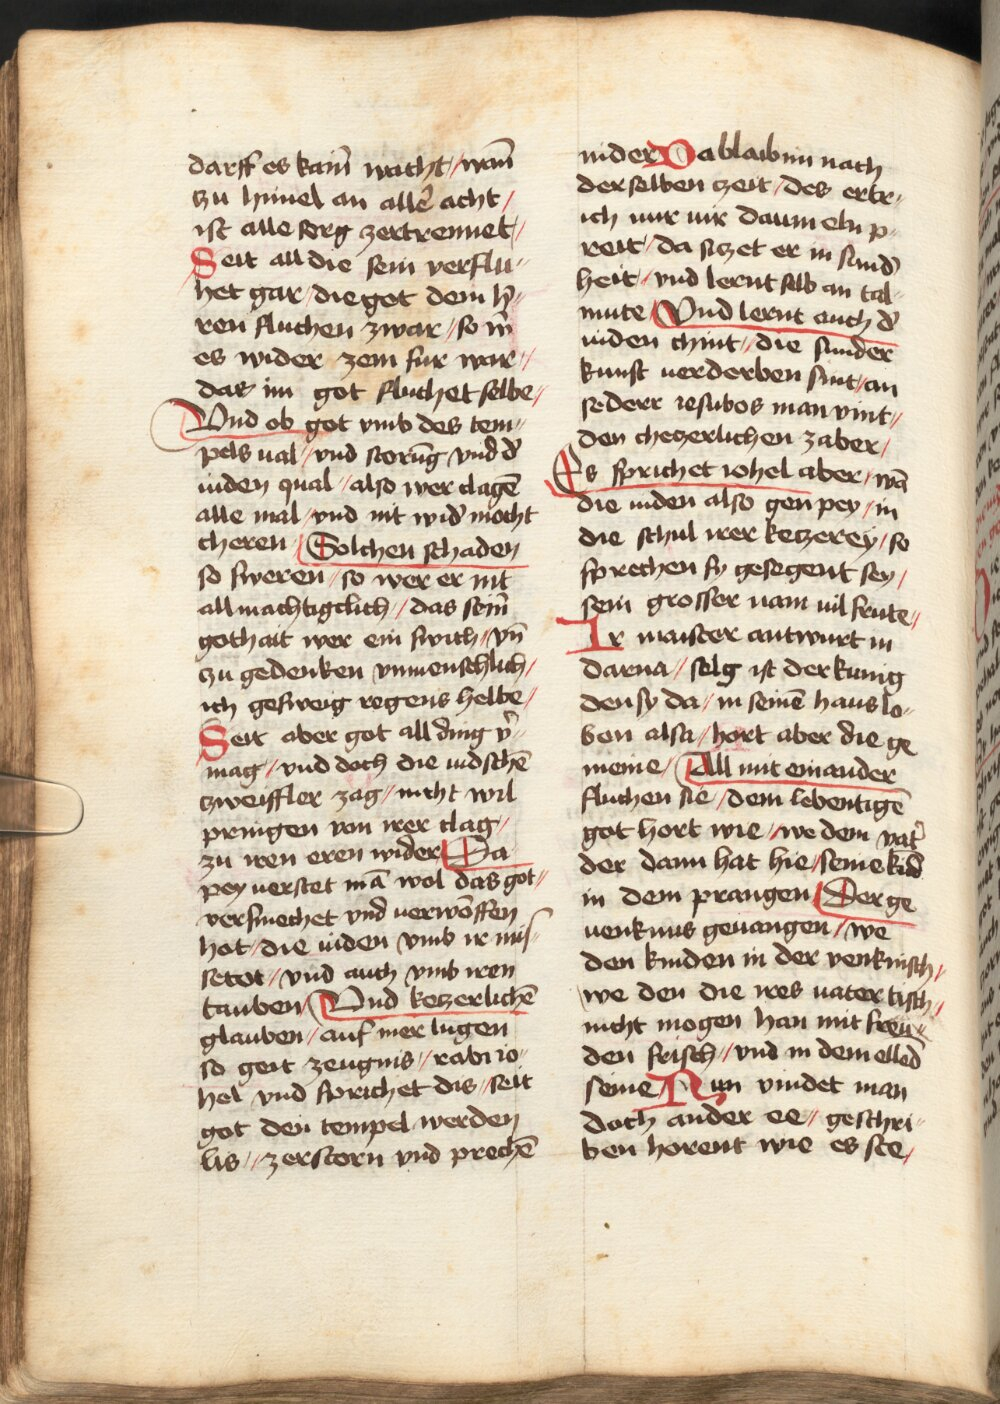 darff es kain̄ wacht / wan̄
zu himel an aller̄ acht /
ist alle sorg zertrennet /
Seit all die sein verflu-
het gar / die got dem h̄-
ren fluchen zwar / so w̄
es wider zem fur war /
das im got fluchet selbe /
Vnd ob got vmb des tem-
pels ual / vnd storūg vnd d̄
iuden qual / also wer clagē
alle mal / vnd nit wid̄ mocht
cheren / Solchen schaden
so sweren / so wer er nit
allmachtigclich / das sein̄
gothait wer ein swich / vn̄
zu gedenken vnmenschlich /
ich gesweig regens helbe /
Seit aber got all ding v̄
mag / vnd doch die iudschē
zweiffler zag / nicht wil
pringen von irer clag /
zu iren eren wider Da
pey verstet mā wol das got /
versmechet vnd verwōffen
hot / die iuden vmb ir mis-
setot / vnd auch vmb iren
tauben / Vnd ketzerlichē
glauben / auf mer lugen
so geit zeugnis / rabi io-
hel vnd sprichet dis / seit
got den tempel werden
lis / zerstorn vnd prechē
nider Da blaib im nach
der selben zeit / des ertr-
ich nur vir daum eln p-
reit / da sizet er in sund̄
heit / vnd lernt selb an tal-
mute / Vnd lernt auch d̄
iuden chint / die sunder
kunst verderben sint / an
sederr iesubos man vint /
den checzerlichen zaber /
Es sprichet iohel aber / wā
die iuden also gen pey / in
die schul irer ketzerey / so
sprechen sy gesegent sey /
sein grosser nam vil frute /
Ir maister antwurt in
darna / selg ist der kunig
den sy da / in seinē haus lo-
ben alsa / hort aber die ge
meine / All mit einander
fluchen sie / dem lebentigē
got hort wie / we dem vat̄
der dann hat hie / seine kid̄
in dem prangen / Der ge
uenknus geuangen / we
den kinden in der venknisch /
we den die ires uater tisch /
nicht mogen han mit freu-
den frisch / vnd in dem elled̄
seine / Nun vindet man
doch ander ee / geschri-
ben horent wie es ste /